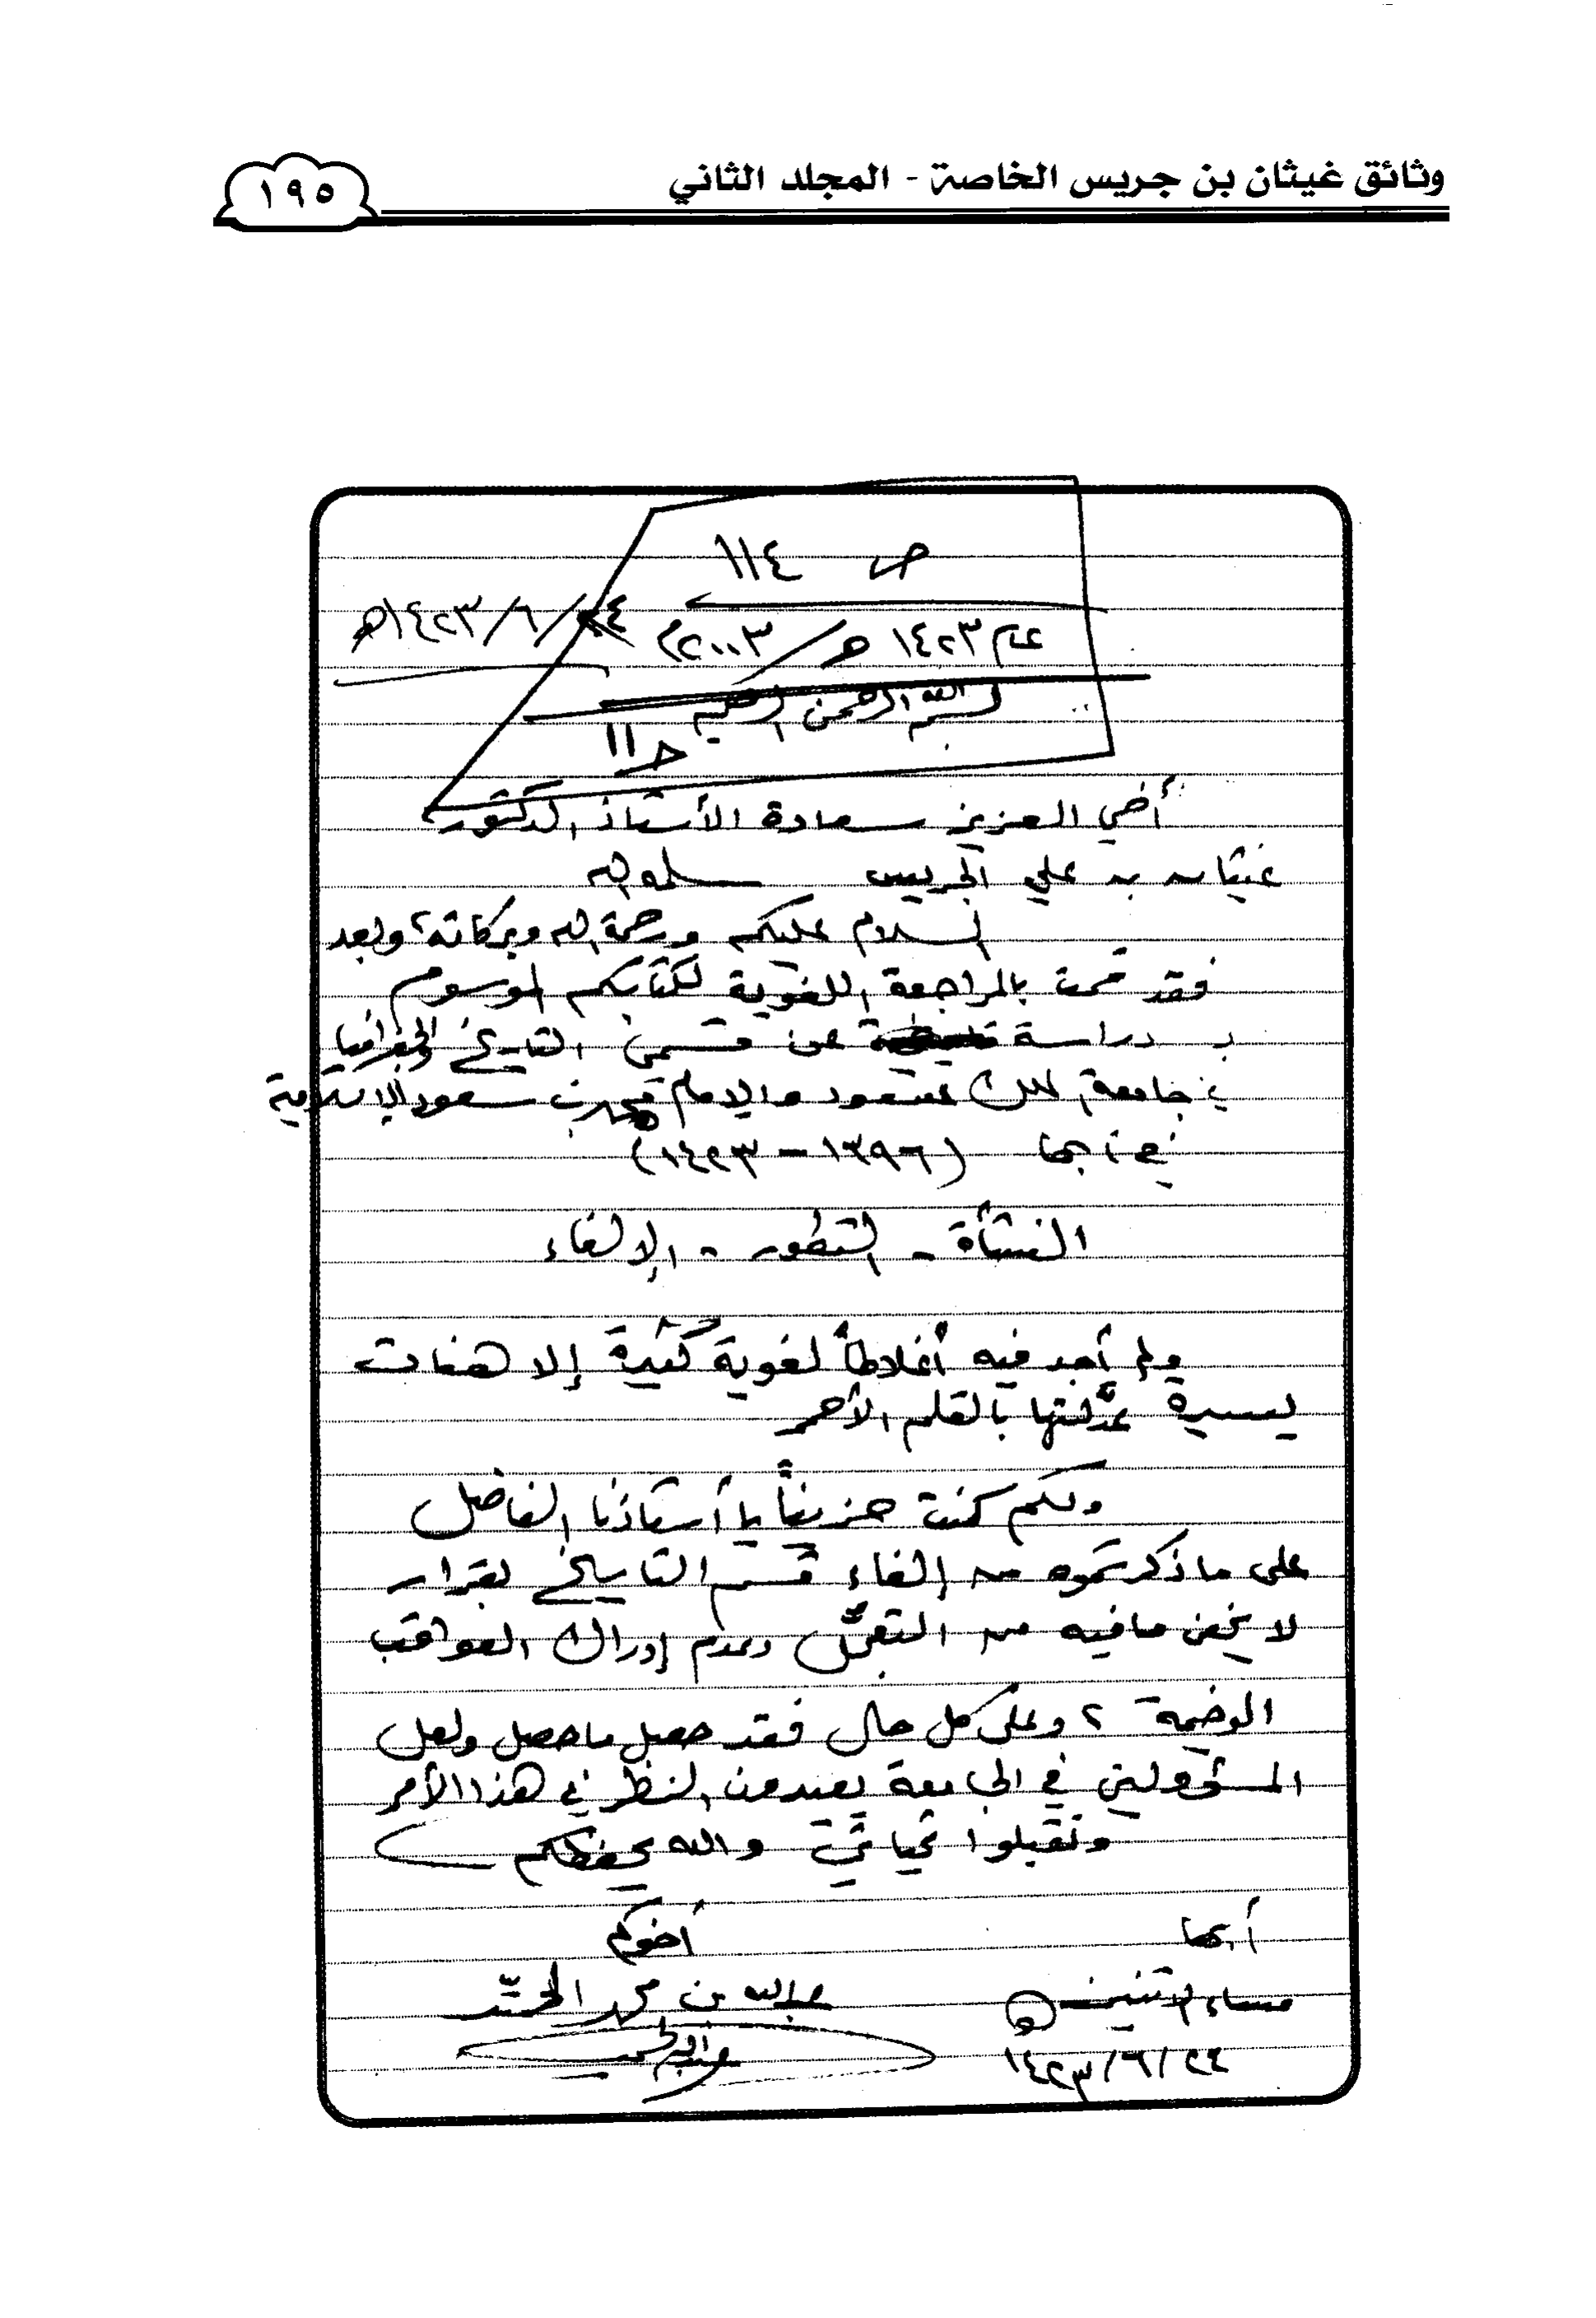 وثائق غيثان بن جريس الخاصة - المجلد الثاني
١٩٥
ص ١١٤
عام ١٤٢٣ هـ / ٢٠٠٣م
٢٤/٦/١٤٢٣هـ
بسم الله الرحمن الرحيم
١١
أخي العزيز سعادة الأستاذ الدكتور
غيثان بن علي الجريس سلمه الله
السلام عليكم ورحمة الله وبركاته، وبعد
فقد قمت بالمراجعة اللغوية لكتابكم الموسوم
بـ دراسة عن قسمي التاريخ والجغرافيا
في جامعة الملك سعود والإمام محمد بن سعود الإسلامية
في أبها (١٣٩٦ - ١٤٢٣)
النشأة - التطور - الإلغاء
ولم أجد فيه أغلاطاً لغوية كثيرة إلا هنات
يسيرة عدَّلتها بالقلم الأحمر
ولكم كنت حزيناً يا أستاذنا الفاضل
على ما ذكرتموه من إلغاء قسم التاريخ بقرار
لا يخفى ما فيه من التعجّل وعدم إدراك العواقب
الوخيمة، وعلى كل حال فقد حصل ما حصل ولعل
المسئولين في الجامعة يعيدون النظر في هذا الأمر
وتقبلوا تحياتي والله يحفظكم
أبها
أخوكم
مساء الاثنين
عبدالله بن محمد
٢٤/٦/١٤٢٣